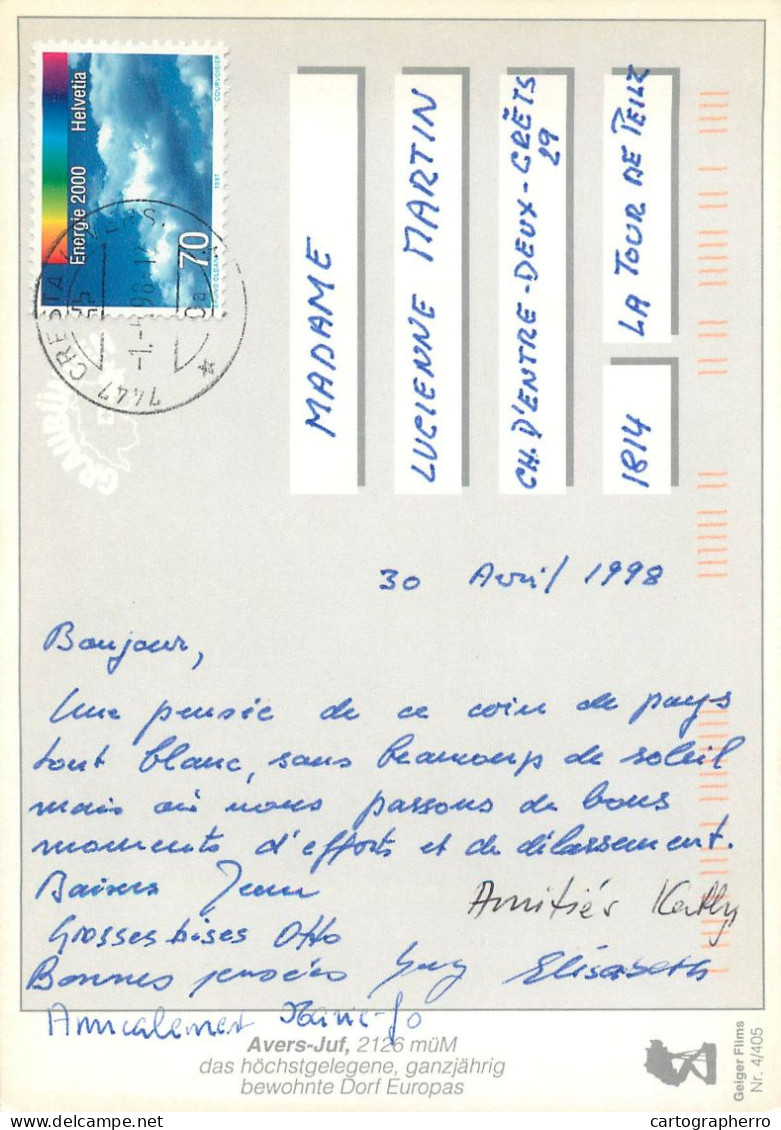 Energie 2000 Helvetia
70
COURVOISIER
1997
7447 CRESTA
GRAUBÜ
MADAME
LUCIENNE MARTIN
CH. D'ENTRE-DEUX-CRÊTS
29
1814 LA TOUR DE PEILZ
30 Avril 1998
Bonjour,
Une pensée de ce coin de pays
tout blanc, sans beaucoup de soleil
mais où nous passons de bons
moments d'efforts et de délassement.
Baisers Jean
Amitiés Kathy
Grosses bises Otto
Bonnes pensées Guy Elisabeth
Amicalement Marie-Jo
Avers-Juf, 2126 müM
das höchstgelegene, ganzjährig
bewohnte Dorf Europas
Geiger Flims
Nr. 4/405
cartographerro